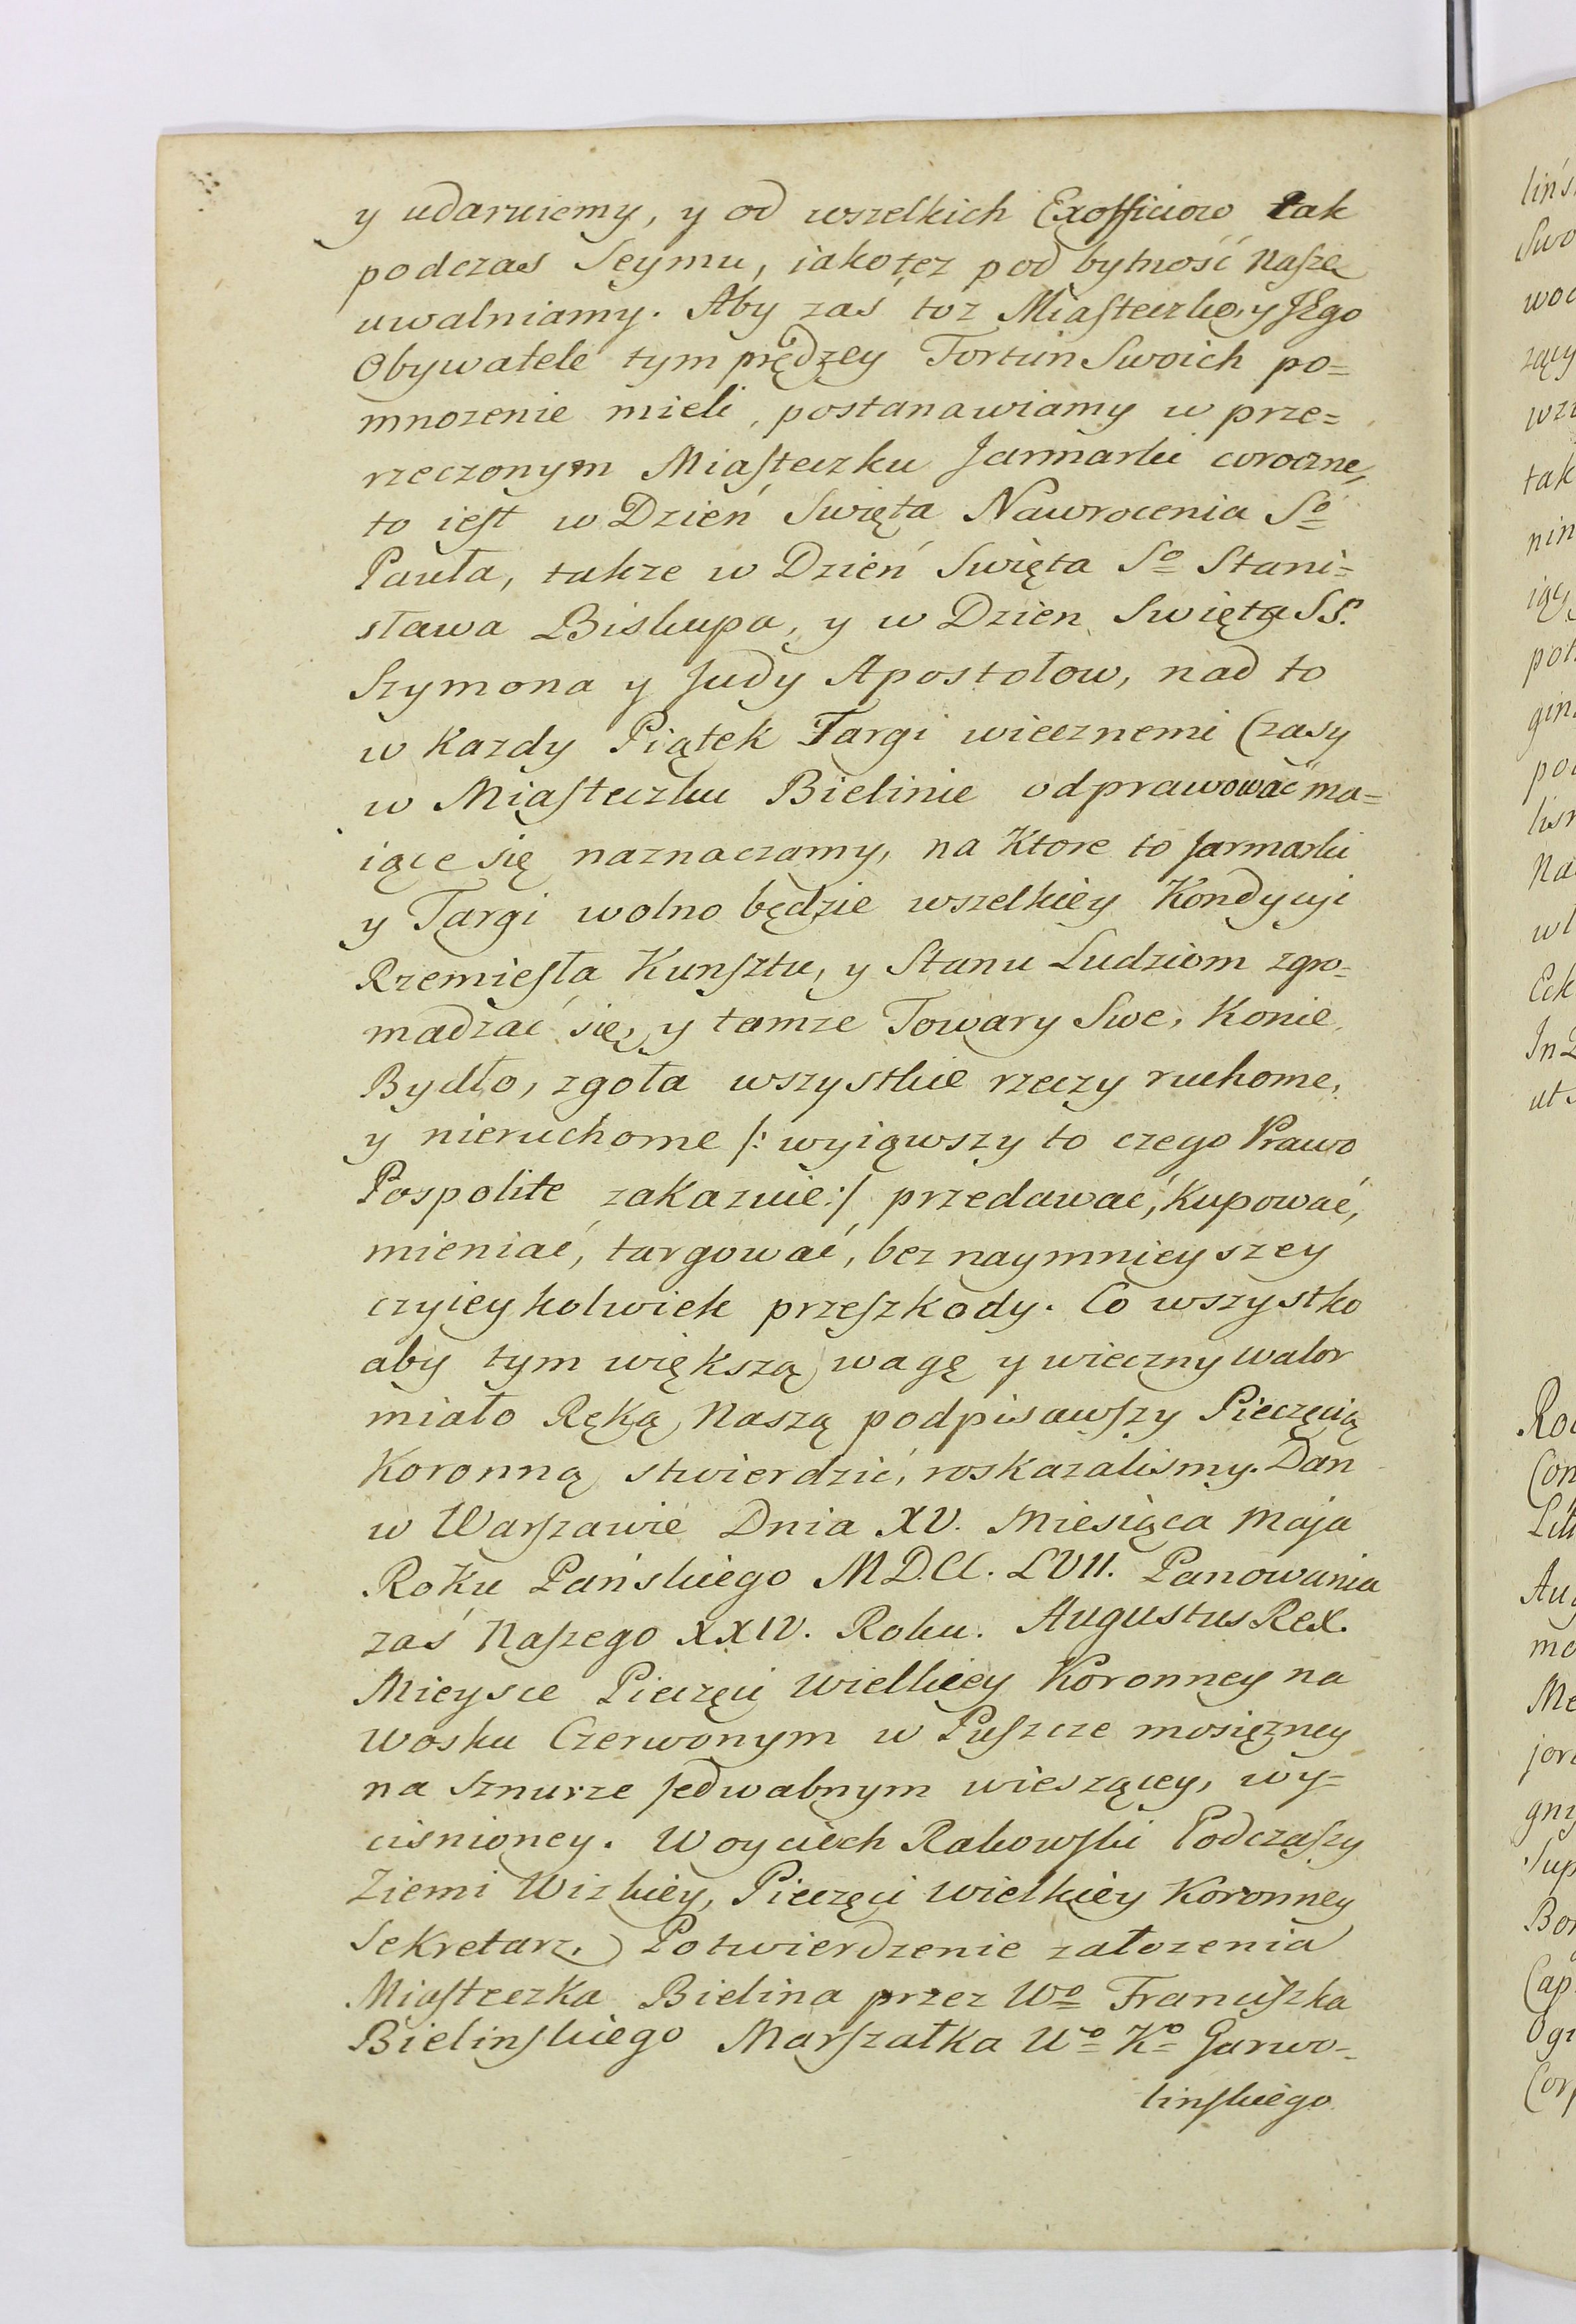 y udaruiemy, y od wszelkich Exofficiow tak
podczas Seymu, iakotez pod bytność Naszę
uwalniamy. Aby zaś toz Miasteczko, y JEgo
Obywatele tym prędzey Fortun Swoich po=
mnozenie mieli, postanawiamy w prze=
rzeczonym Miasteczku Jarmarki coroczne,
to iest w Dzień Swięta Nawrocenia So
Pawła, takze w Dzień Swięta So Stani=
sława Biskupa, y w Dzien Swięta SS.
Szymona y Judy Apostołow, nad to
w Kazdy Piątek Targi wiecznemi Czasy
w Miasteczku Bielinie odprawować ma=
iące się naznaczamy, na Ktore to Jarmarki
y Targi wolno będzie wszelkiey Kondycyi
Rzemiesła Kunsztu, y Stanu Ludziom zgro=
madzać się, y tamze Towary Swe, Konie,
Bydło, zgoła wszystkie rzeczy ruchome,
y nieruchome /: wyiąwszy to czego Prawo
Pospolite zakazuie :/ przedawać, Kupować,
mieniać, targować, bez naymnieyszey
czyieykolwiek przeszkody. Co wszystko
aby tym większą wagę y wieczny walor
miało Ręką Naszą podpisawszy Pieczęcią
Koronną stwierdzić, roskazalismy. Dan
w Warszawie Dnia XV. Miesiąca Maja
Roku Pańskiego MDCC. LVII. Panowania
zaś Naszego XXIV. Roku. Augustus Rex.
Mieysce Pieczęci Wielkiey Koronney na
Wosku Czerwonym w Puszcze mosiężney
na Sznurze Jedwabnym wieszącey, wy=
cisnioney. Woyciech Rakowski Podczaszy
Ziemi Wizkiey, Pieczęci Wielkiey Koronney
Sekretarz. Potwierdzenie załozenia
Miasteczka Bielina przez Wo Franciszka
Bielinskiego Marszałka Wo Ko Garwo=
linskiego